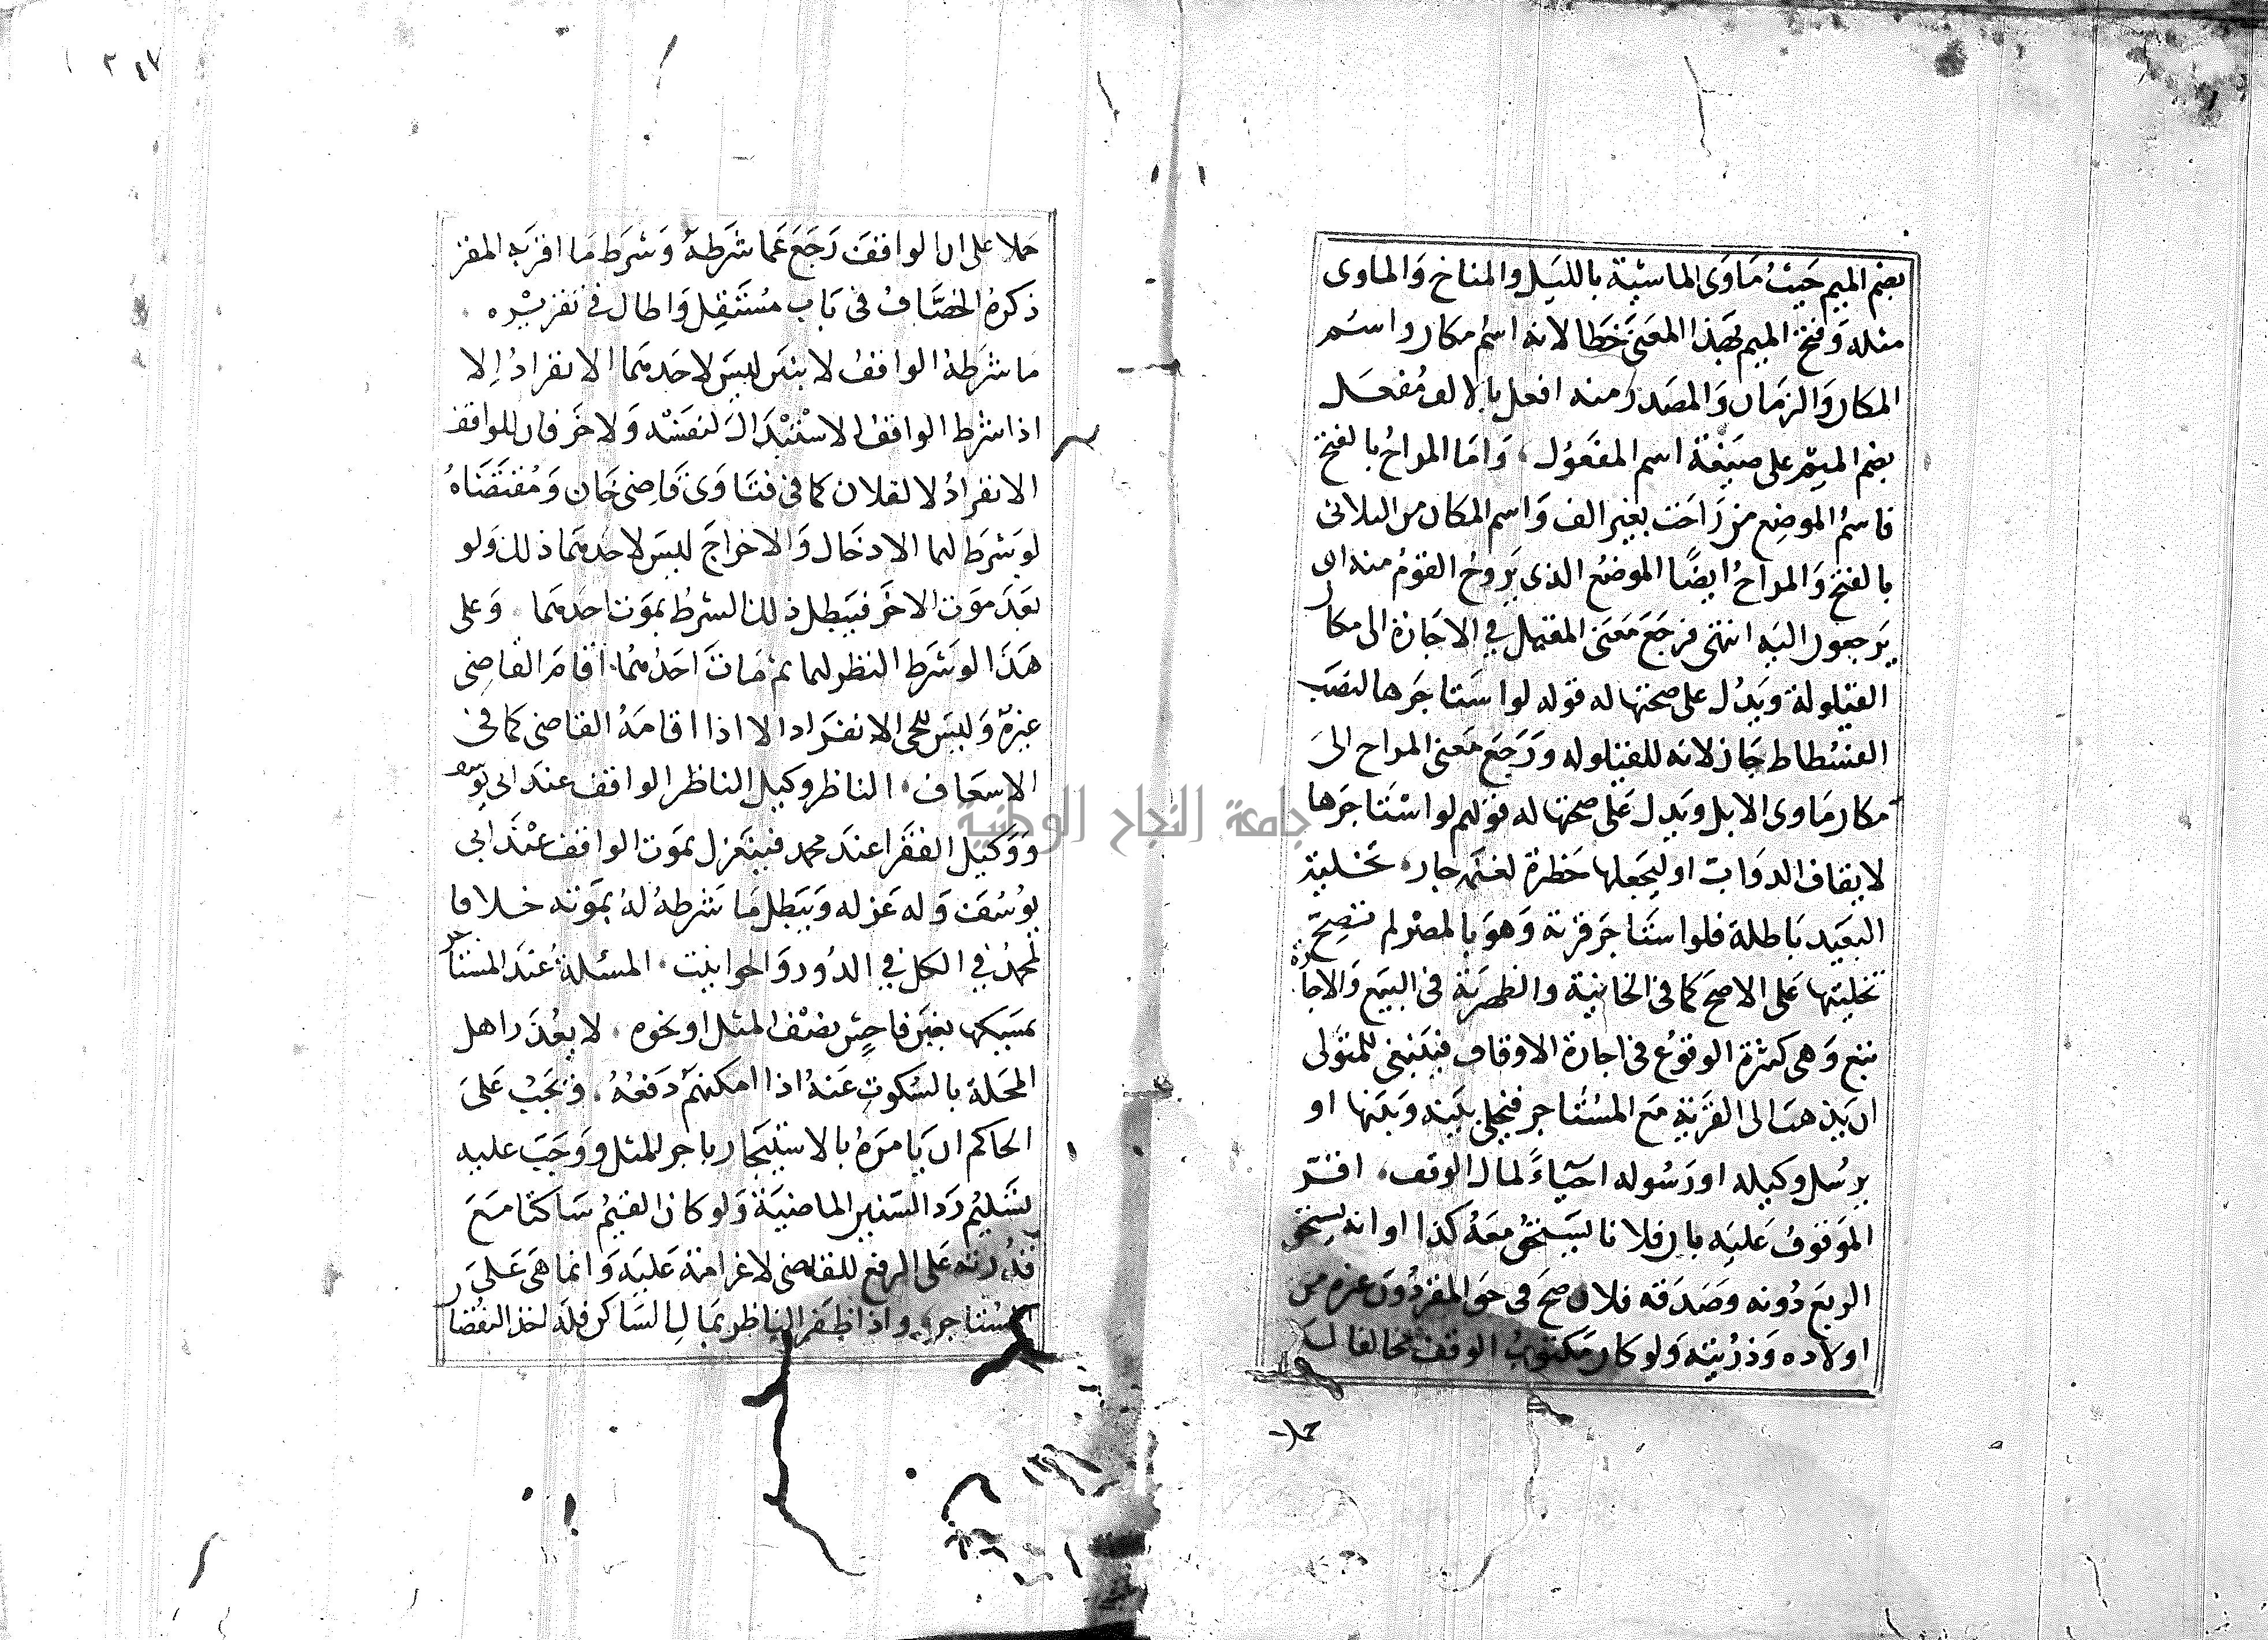 بضم الميم حيث ماوى الماشية بالليل والمناخ والماوى
مثله وفتح الميم بهذا المعنى خطا لانه اسم مكان واسم
المكان والزمان والمصدر منه افعل بالالف مفعل
بضم الميم على صيغة اسم المفعول، واما المراح بالفتح
فاسم الموضع من راحت بغير الف واسم المكان من الثلاثى
بالفتح والمراح ايضًا الموضع الذى يروح القوم منه او
يرجعون اليه انتهى فرجع معنى المقيل في الاجازة الى مكان
القيلولة ويدل على صحتها له قوله لو استاجرها لنصب
الفسطاط جاز لانه للقيلوله ورجع معنى المراح الى
مكان ماوى الابل ويدل على صحتها له قولهم لو استاجرها
لايقاف الدواب او ليجعلها حظرة لغنمه جاز، تخلية
البعيد باطلة فلو استاجر قرية وهو بالمصر لم تصح
تخليتها على الاصح كما فى الخانية والظهرية فى البيع والاجارة
تنبع وهى كثرة الوقوع فى اجارة الاوقاف فينبغى للمتولى
ان يذهب الى القرية مع المستاجر فيخلى بينه وبينها او
يرسل وكيله او رسوله احياءً لمال الوقف، اقرّ
الموقوف عليه بان فلانا يستحق معه كذا او انه يستحق
الريع دونه وصدقه فلان صح فى حق المقر دون غيره من
اولاده وذريته ولو كان مكتوب الوقف مخالفا له
حملا
حملا على ان الواقف رجع عما شرطه وشرط ما اقر به المقر
ذكره الخصاف فى باب مستقل واطال فى تقريره
ما شرطه الواقف لاثنين ليس لاحدهما الانفراد الا
اذا شرط الواقف الاستبدال لنفسه ولاخر فان للواقف
الانفراد لا لفلان كما فى فتاوى قاضى خان ومقتضاه
لو شرط لهما الادخال والاخراج ليس لاحدهما ذلك ولو
بعد موت الاخر فيبطل ذلك الشرط بموت احدهما، وعلى
هذا لو شرط النظر لهما ثم مات احدهما، اقام القاضى
غيره وليس للحى الانفراد الا اذا اقامه القاضى كما فى
الاسعاف، الناظر وكيل الناظر الواقف عند ابى يوسف
ووكيل الفقرا عند محمد فينعزل بموت الواقف عند ابى
يوسف وله عزله ويبطل ما شرطه له بموته خلافا
لمحمد في الكل في الدور والحوانيت، المسئلة عند المستاجر
يمسكها بغبن فاحش نصف المثل او نحوه، لا يعذر اهل
المحلة بالسكوت عنه اذا امكنهم دفعه، فيجب على
الحاكم ان يامره بالاستيجار باجر المثل ووجب عليه
تسليم رد السنين الماضية ولو كان القيم ساكتا مع
قدرته على الرفع للقاضى لا غرامة عليه وانما هى على
المستاجر، واذا ظفر الناظر بمال الساكن فله اخذ النقصان
جامعة النجاح الوطنية